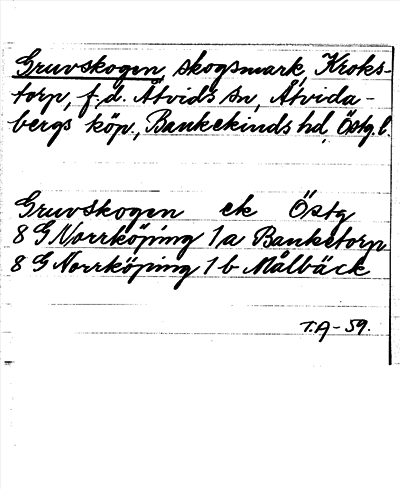 Gruvskogen, skogsmark, Kroks-
torp, f.d. Åtvids sn, Åtvida-
bergs köp., Bankekinds hd, Östg.l.
Gruvskogen ek Östg
8 G Norrköping 1 a Banketorp
8 G Norrköping 1 b Målbäck
T.A-59.